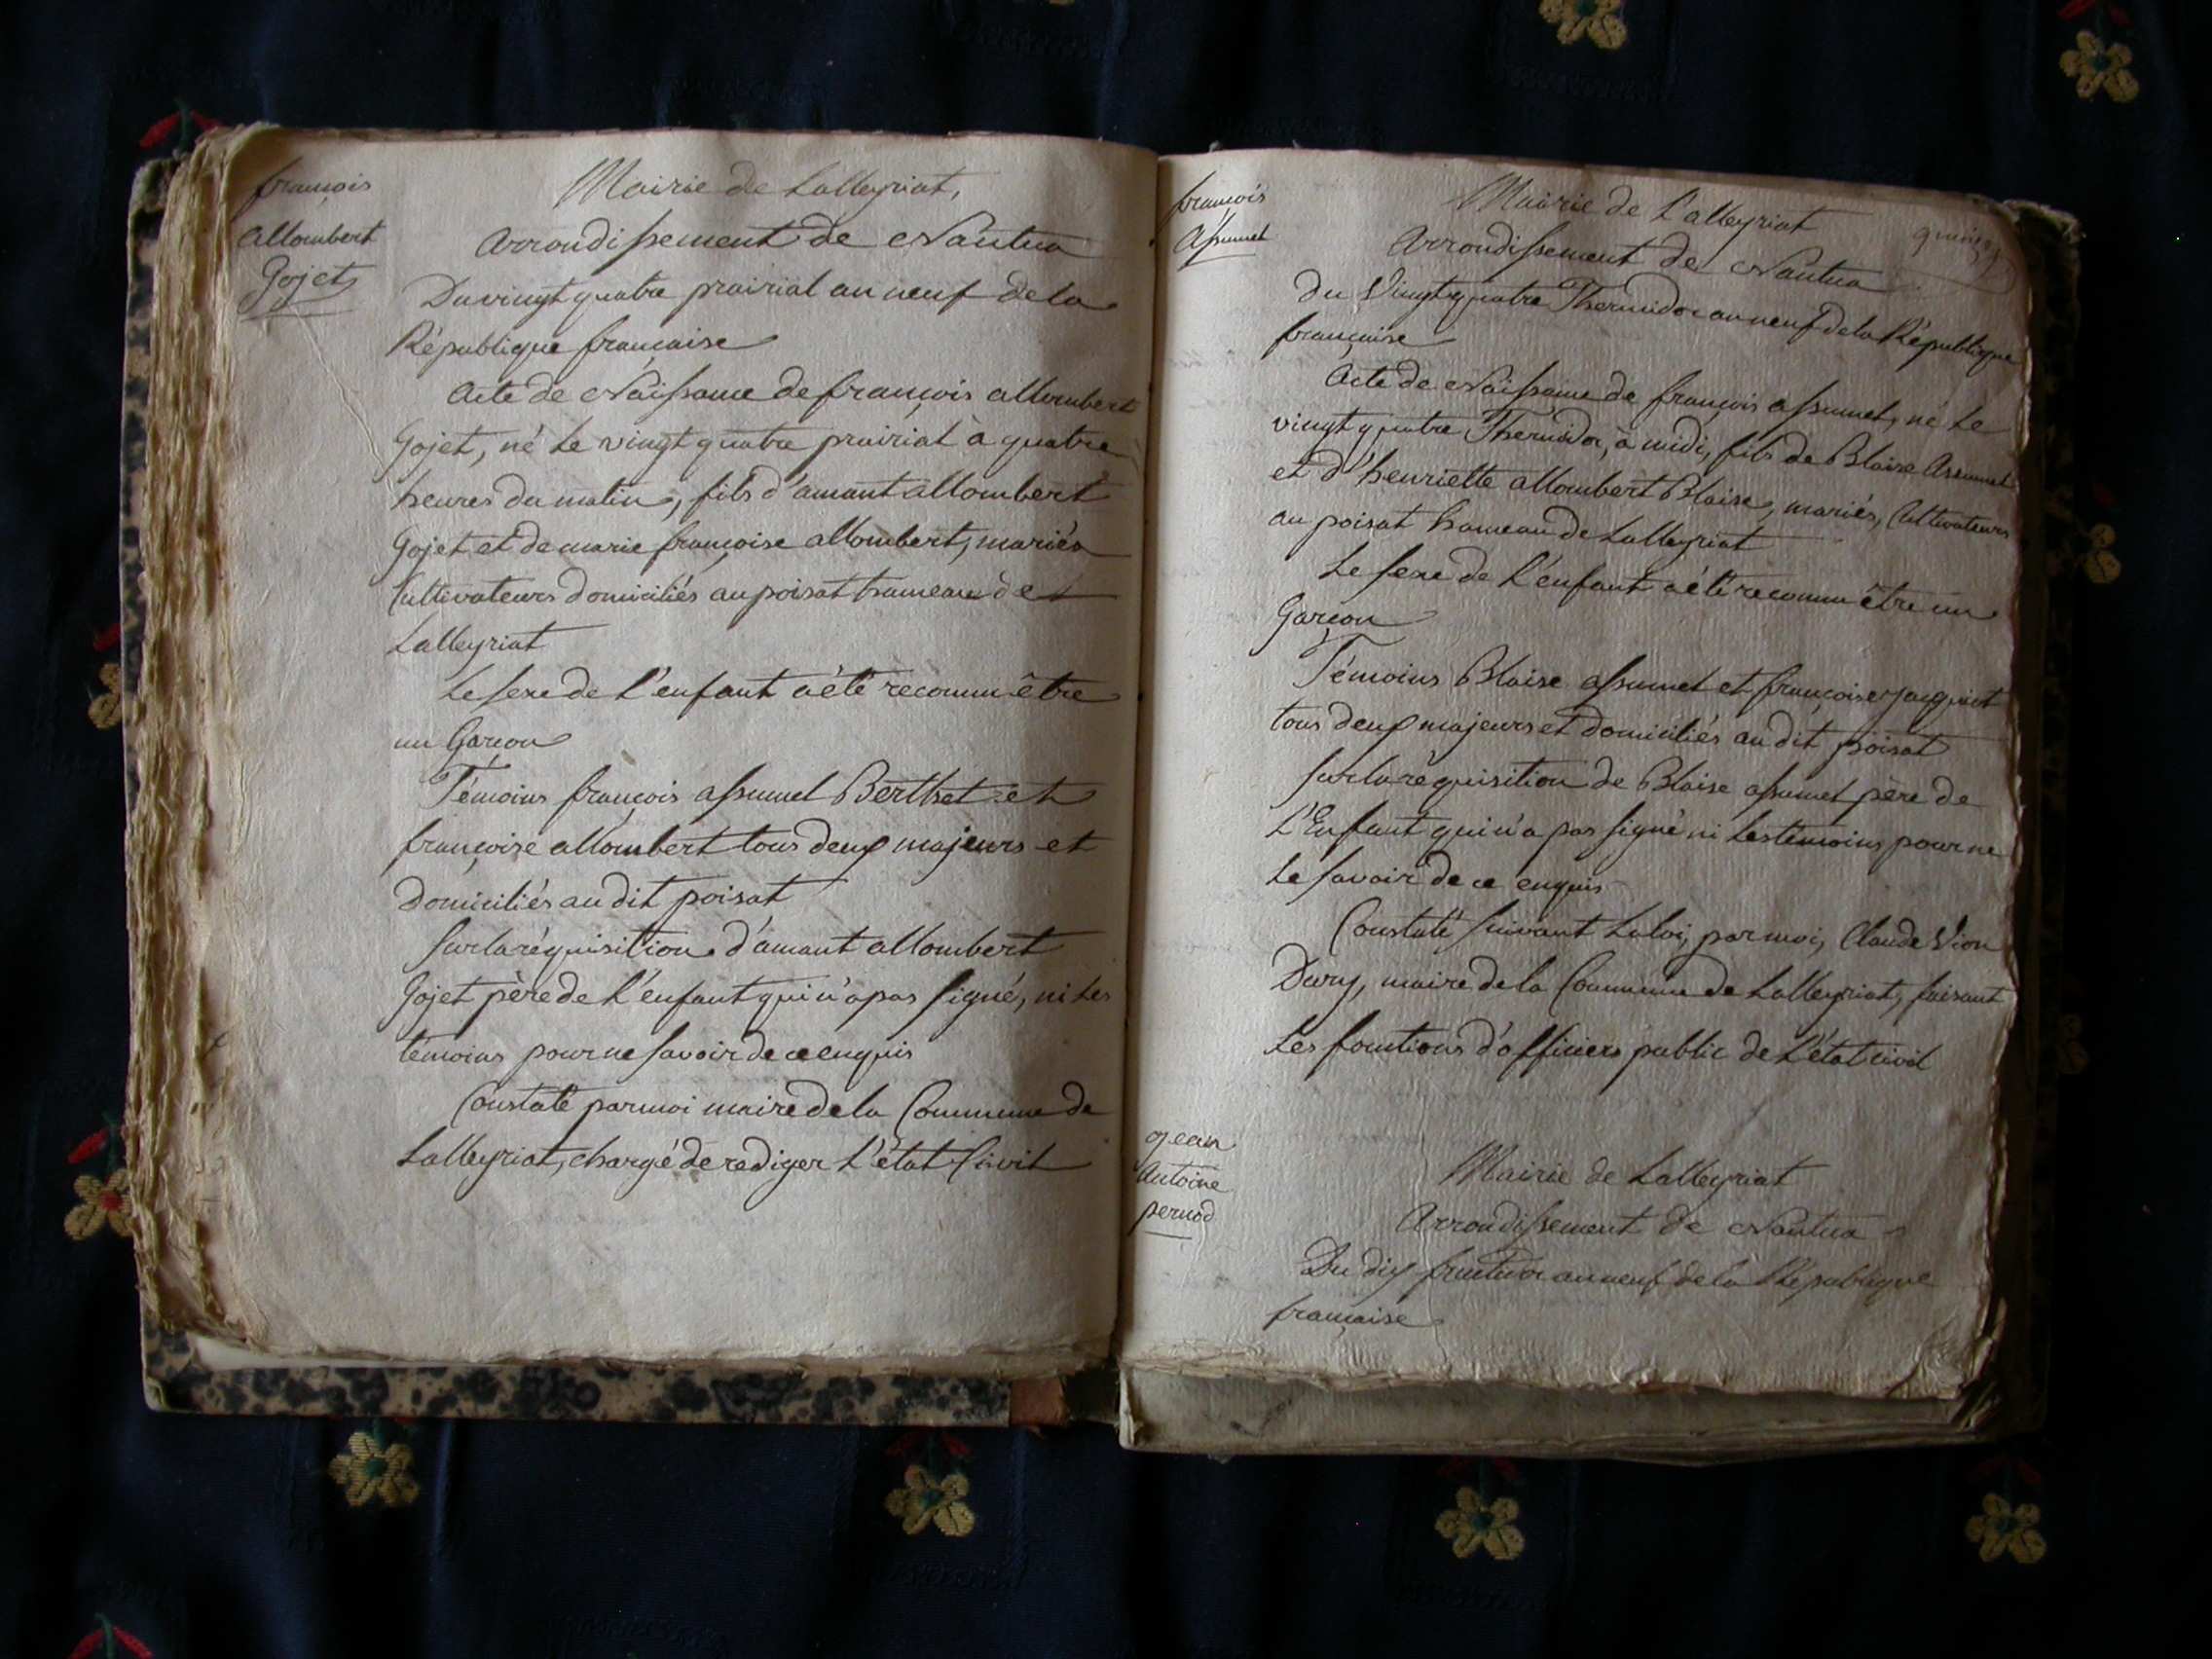 françois
allombert
Gojet
Mairie de Lalleyriat,
Arrondissement de Nantua
Du vingt quatre prairial an neuf de la
République française
Acte de Naissance de françois allombert
Gojet, né le vingt quatre prairial à quatre
heures du matin, fils d'amant allombert
Gojet et de marie françoise allombert, mariés
Cultivateurs domiciliés au poisat hameau de
Lalleyriat
Le sexe de l'enfant a été reconnu être
un Garçon
Témoins françois assumel Berthet et
françoise allombert tous deux majeurs et
domiciliés au dit poisat
sur la réquisition d'amant allombert
Gojet père de l'enfant qui n'a pas signé, ni les
témoins pour ne savoir de ce enquis
Constaté par moi maire de la Commune de
Lalleyriat, chargé de rediger l'état Civil
françois
Assumel
Mairie de L'alleyriat
Arrondissement de Nantua
du Vingt quatre Thermidor an neuf de la République
française
Acte de Naissance de françois assumel, né le
vingt quatre Thermidor, à midi, fils de Blaise Assumel
et d'henriette allombert Blaise, mariés, Cultivateurs
au poisat hameau de Lalleyriat
Le sexe de l'enfant a été reconnu être un
Garçon
Témoins Blaise assumel et françoise jacquiot
tous deux majeurs et domiciliés au dit poisat
sur la réquisition de Blaise assumel père de
L'Enfant qui n'a pas signé ni les témoins pour ne
le savoir de ce enquis
Constaté suivant la loi, par moi, Claude Vion
Dury, maire de la Commune de Lalleyriat, faisant
Les fonctions d'officiers public de l'état civil
Jean
Antoine
pernod
Mairie de Lalleyriat
Arrondissement de Nantua
Du dix fructidor an neuf de la République
française